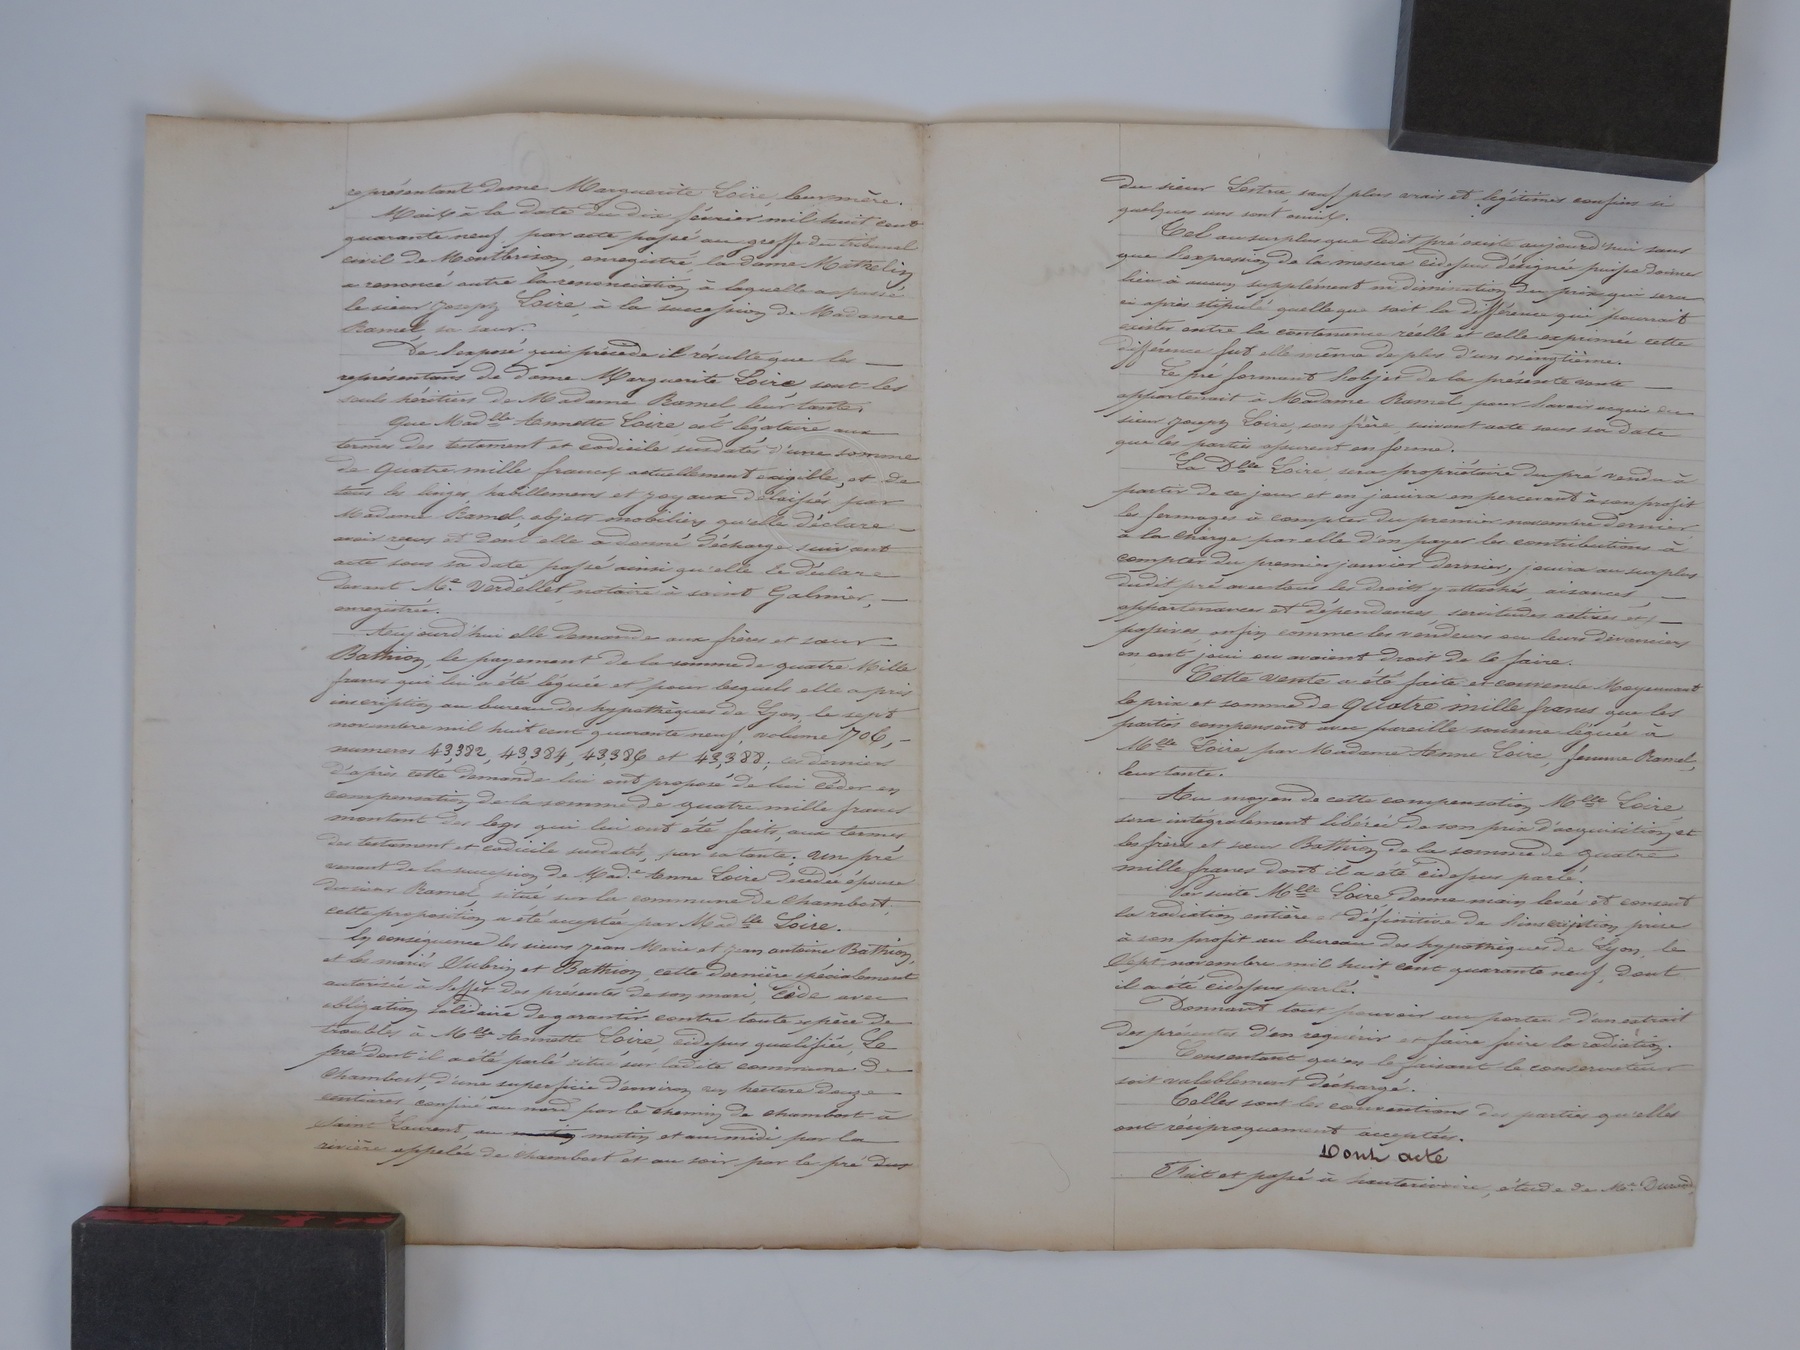 représentant dame Marguerite Loire leur mère.
Mais à la date du dix février mil huit cent
quarante neuf, par acte passé au greffe du tribunal
civil de Montbrison, enregistré, la dame Mathelin
a renoncé outre la renonciation à laquelle a passé
le sieur Joseph Loire, à la succession de Madame
Ramel, sa sœur.
De l'exposé qui précède il résulte que les —
représentans de dame Marguerite Loire sont les
seuls heritiers de Madame Ramel leur tante,
Que Madlle Annette Loire est légataire aux
termes des testament et codicile susdatés d'une somme
de quatre mille francs actuellement exigible, et de
tous les linges, habillemens et joyaux délaissés par
Madame Ramel, objets mobiliers qu'elle déclare —
avoir reçus et dont elle a donné décharge suivant
acte sous sa date passé ainsi qu'elle le déclare
devant Me. Verdellet notaire à saint Galmier, —
enregistrée.
Aujourd'hui elle demande aux frères et sœur
Bathion, le payement de la somme de quatre Mille
francs qui lui a été léguée et pour lesquels elle a pris
inscription au bureau des hypothèques de Lyon, le sept
novembre mil huit cent quarante neuf, volume 1706, —
numeros 43,382, 43,384, 43,386 et 43,388; ces derniers
d'après cette demande lui ont proposé de lui céder en
compensation de la somme de quatre mille francs
montant des legs qui lui ont été faits, aux termes
des testament et codicile susdatés, par sa tante. un pré
venant de la succession de Made. Anne Loire décédée épouse
du sieur Ramel, situé sur la commune de Chambost,
cette proposition a été acceptée par Madlle Loire.
En conséquence les sieurs Jean Marie et Jean antoine Bathion,
et les mariés Aubrin et Bathion, cette dernière spécialement
autorisée à l'effet des présentes de son mari, cède avec
obligation solidaire de garantir contre toute espèce de
troubles à Mlle Annette Loire, cidessus qualifiée, Le
pré dont il a été parlé situé sur ladite commune de
Chambost, d'une superficie d'environ un hectare douze
centiares, confiné au nord par le chemin de chambost à
Saint Laurent, au matin matin et au midi par la
rivière appelée de Chambost et au soir par le pré dur
du sieur Lestra sauf plus vrais et légitimes confins si
quelques uns sont omis.
Tel au surplus que ledit pré existe aujourd'hui sans
que l'expression de la mesure cidessus désignée puisse donner
lieu à aucun supplément ni diminution du prix qui sera
ci après stipulé quelleque soit la différence qui pourrait
exister entre la contenance réelle et celle exprimée cette
différence fut elle même de plus d'un vingtième.
Le pré formant l'objet de la présente vente —
appartenait à Madame Ramel pour l'avoir acquis du
sieur Joseph Loire, son frère suivant acte sous sa date
que les parties assurent en forme.
La Dlle Loire, sera propriétaire du pré vendu à
partir de ce jour et en jouira en percevant à son profit
les fermages à compter du premier novembre dernier
à la charge par elle d'en payer les contributions à
compter du premier janvier dernier, jouira au surplus
dudit pré avec tous les droits y attachés, aisances, —
appartenances et dépendances, servitudes actives et —
passives, enfin comme les vendeurs ou leurs devanciers
en ont joui ou avaient droit de le faire.
Cette vente a été faite et convenue Moyennant
le prix et somme de quatre mille francs que les
parties compensent avec pareille somme léguée à
Mlle Loire par Madame Anne Loire, femme Ramel,
leur tante.
Au moyen de cette compensation Mlle Loire
sera intégralement libérée de son prix d'acquisition, et
les frères et sœur Bathion de la somme de quatre
mille francs dont il a été cidessus parlé.
Par suite Mlle Loire donne main levée et consent
la radiation entière et définitive de l'inscription prise
à son profit au bureau des hypothèques de Lyon, le
sept novembre mil huit cent quarante neuf, dont
il a été cidessus parlé.
Donnant tout pouvoir au porteur d'un extrait
des présentes d'en requérir et faire faire la radiation.
Consentant qu'en le faisant le conservateur
soit valablement déchargé.
Telles sont les conventions des parties qu'elles
ont réciproquement acceptées.
Dont acte
Fait et passé à hauterivoire, étude de Me. Durand,